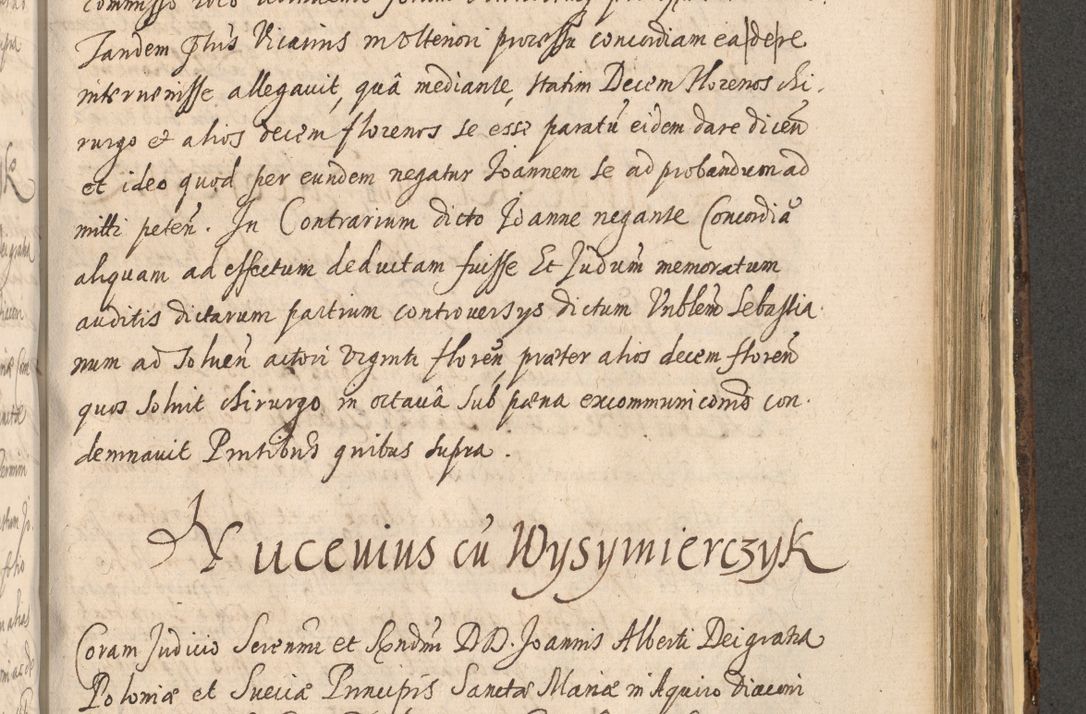 Tandem Ipsius Vicarius moltenori processu concordiam ea de re
intervenisse allegavit, quâ mediante, statim Decem Florenos chi-
rurgo et alios decem florenos se esse paratũ eidem dare dicen̄
et ideo quod per eundem negatur Joannem se ad probandum ad
mitti peten̄. In Contrarium dicto Joanne negante Concordiã
aliquam ad effectum deductam fuisse Et Judum̄ memoratum
auditis dictarum partium controversys dictum Vnblem̄ Sebastia-
num ad soluen̄ actori viginti floren̄ præter alios decem floren̄
quos soluit chirurgo in octavâ sub pæna excommunicõnis con-
demnavit Pn̄tibus quibus supra.
Xucevius cũ Wysymierczyk
Coram Judicio Serenmi et Rn̄dmi DD. Joannis Alberti Dei gratia
Poloniæ et Sueciæ Principis Sanctæ Mariæ in Aquiro diaconi